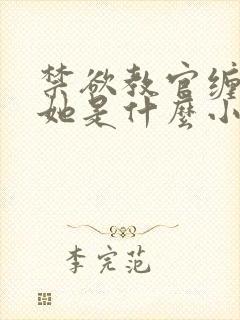 禁欲教官缠
她是什麼小
李完范